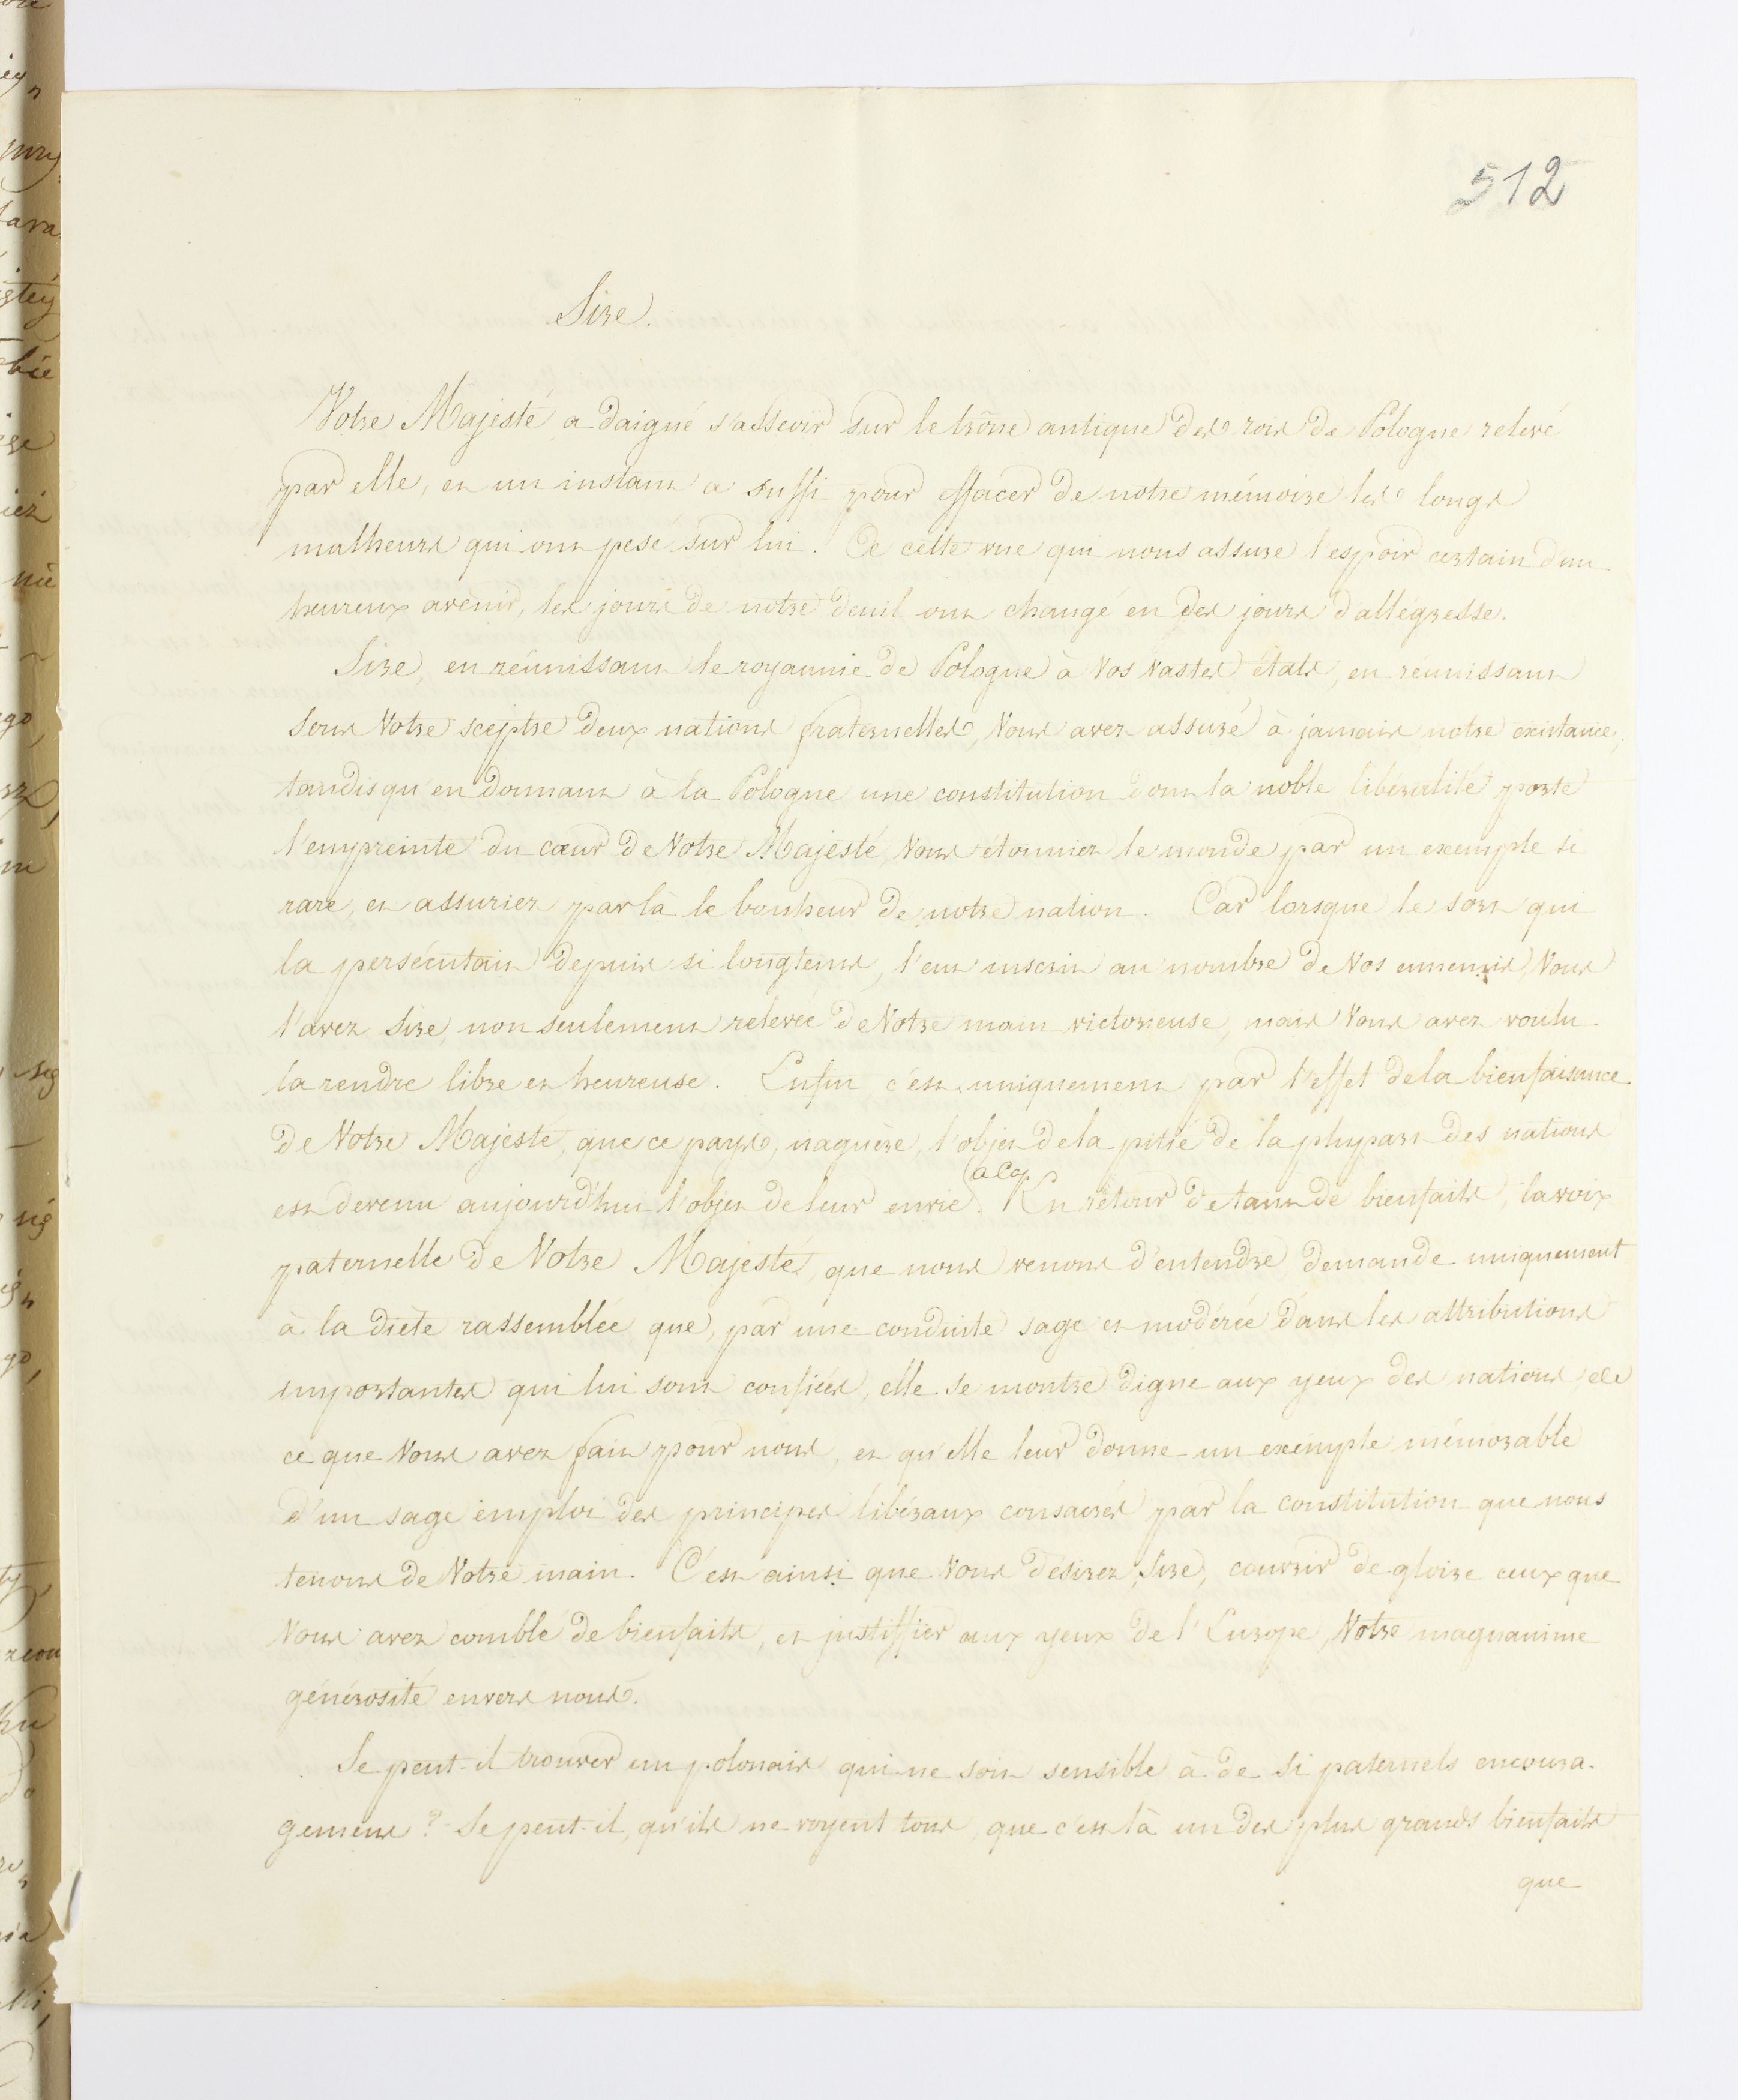 512
Sire.
Votre Majesté a daigné s'asseoir sur le trône antique des rois de Pologne relevé
par elle, et un instant a suffi pour effacer de notre mémoire les longs
malheurs qui ont pesé sur lui. De cette vue qui nous assure l'espoir certain d'un
heureux avenir, les jours de notre deuil ont changé en des jours d'allégresse.
Sire, en réunissant le royaume de Pologne à Vos vastes états, en réunissant
sous Votre sceptre deux nations fraternelles, Vous avez assuré à jamais notre existance;
tandis qu'en donnant à la Pologne une constitution dont la noble libéralité porte
l'empreinte du cœur de Votre Majesté, Vous étonniez le monde par un exemple si
rare, et assuriez par là le bonheur de notre nation. Car lorsque le sort qui
la persécutait depuis si longtems, l'eut inscrit au nombre de Vos ennemis, Vous
l'avez Sire, non seulement relevée de Votre main victorieuse, mais Vous avez voulu
la rendre libre et heureuse. Enfin c'est uniquement par l'effet de la bienfaisance
de Votre Majesté, que ce pays, naguère, l'objet de la pitié de la plupart des nations
est devenu aujourd'hui l'objet de leur envie. En retour de tant de bienfaits, la voix
paternelle de Votre Majesté, que nous venons d'entendre demande uniquement
à la diète rassemblée que, par une conduite sage et modérée dans les attributions
importantes qui lui sont confiées, elle se montre digne aux yeux des nations, de
ce que Vous avez fait pour nous, et qu'elle leur donne un exemple mémorable
d'un sage emploi des principes libéraux consacrés par la constitution que nous
tenons de Votre main. C'est ainsi que Vous désirez, Sire, couvrir de gloire ceux que
Vous avez comblé de bienfaits, et justiffier aux yeux de l'Europe, Votre magnanime
générosité envers nous.
Se peut-il trouver un polonais qui ne soit sensible à de si paternels encoura-
gemens? Se peut-il, qu'ils ne voyent tous, que c'est là un des plus grands bienfaits
que